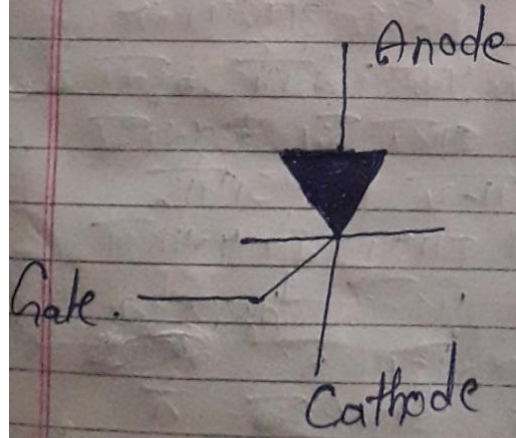 Anode
Gate.
Cathode